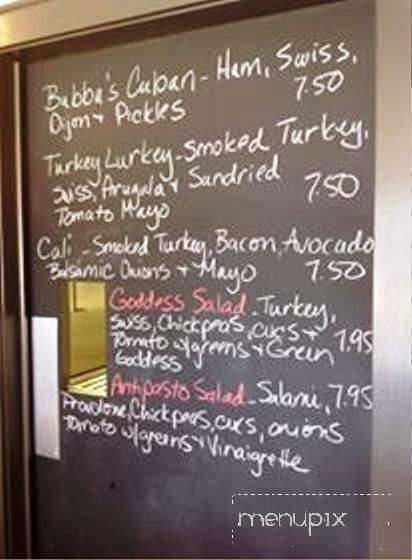 Bubba's Cuban - Ham, Swiss,
Dijon + Pickles 7.50
Turkey Lurkey - Smoked Turkey,
Swiss, Arugula + Sundried
Tomato Mayo 7.50
Cali - Smoked Turkey, Bacon, Avocado
Balsamic Onions + Mayo 7.50
Goddess Salad - Turkey,
Swiss, Chickpeas, cucs +
Tomato w/greens + Green 7.95
Goddess
Antipasto Salad - Salami, 7.95
Provolone, Chickpeas, cucs, onions
tomato w/greens + Vinaigrette
menupix